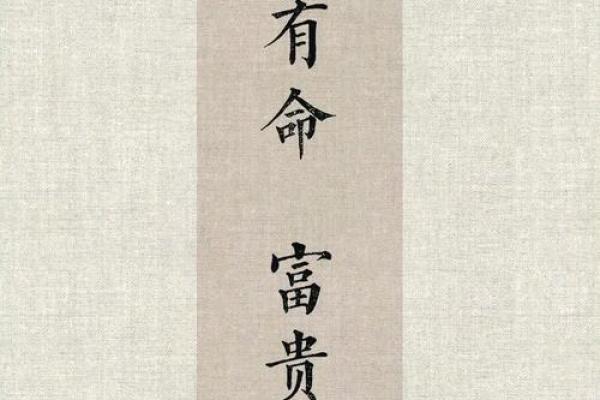 有命 富贵